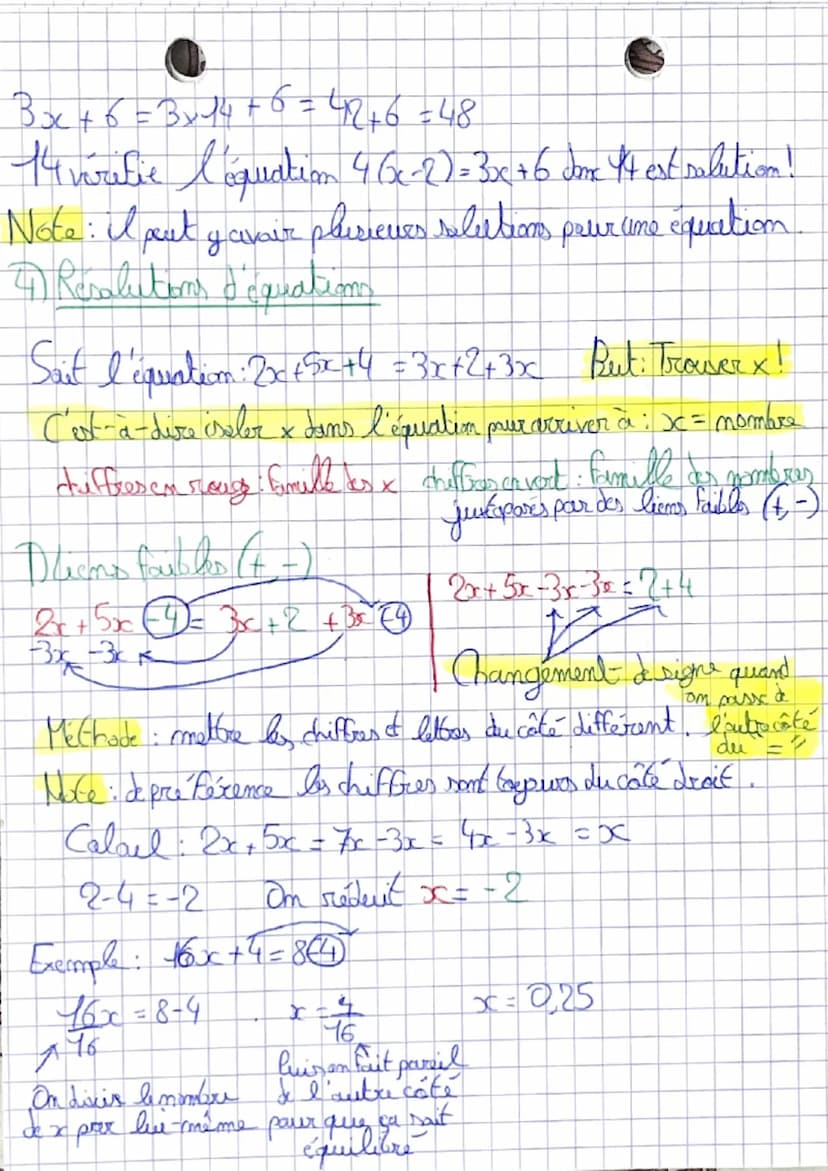 3x + 6 = 3×14 + 6 = 42+6 = 48
14 vérifie l'équation 4(x-2)=3x+6 donc 14 est solution!
Note: il peut y avoir plusieurs solutions pour une équation.
4) Résolutions d'équations
Soit l'équation: 2x+5x+4 = 3x+2+3x But: Trouver x!
C'est-à-dire isoler x dans l'équation pour arriver à: x = nombre
chiffres en rouge: famille des x chiffres en vert: famille des nombres
juxtaposés par des liens faibles (+, -)
1) liens faibles (+, -)
2x + 5x -4 = 3x + 2 + 3x -4
-3x -3x
2x + 5x -3x -3x = 2+4
Changement de signe quand
on passe à
l'autre côté
du "="
Méthode: mettre les chiffres et lettres du côté différent.
Note: de préférence les chiffres sont toujours du côté droit.
Calcul: 2x + 5x = 7x -3x = 4x -3x = x
2-4 = -2 On réduit x = -2
Exemple: 16x + 4 = 8 -4
16x/16 = 8-4 . x = 4/16 x = 0,25
On divis le nombre
de x par lui-même
Puis on fait pareil
de l'autre côté
pour que ça soit
équilibré